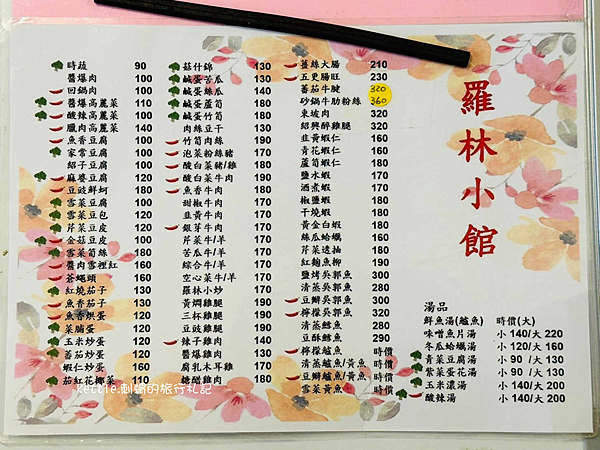 時蔬 90
醬爆肉 100
回鍋肉 100
醬爆高麗菜 110
酸辣高麗菜 110
臘肉高麗菜 140
魚香豆腐 100
家常豆腐 100
紹子豆腐 100
麻婆豆腐 120
豆豉鮮蚵 180
雪菜豆腐 120
雪菜豆包 120
芹菜豆皮 120
金菇豆皮 120
雪菜筍絲 180
醬肉雪裡紅 160
蒼蠅頭 160
紅燒茄子 130
魚香茄子 130
魚香烘蛋 130
菜脯蛋 120
玉米炒蛋 120
蕃茄炒蛋 120
蝦仁炒蛋 160
茄紅花椰菜 110
菇什錦 130
鹹蛋苦瓜 130
鹹蛋絲瓜 140
鹹蛋蘆筍 180
鹹蛋竹筍 180
肉絲豆干 130
竹筍肉絲 190
泡菜粉絲豬 170
酸白菜豬/雞 170
酸白菜牛肉 190
魚香牛肉 180
甜椒牛肉 170
韭黃牛肉 170
銀芽牛肉 170
芹菜牛/羊 170
苦瓜牛/羊 170
綜合牛/羊 170
空心菜牛/羊 160
羅林小炒 170
黃燜雞腿 190
三杯雞腿 190
豆豉雞腿 190
辣子雞肉 140
醬爆雞肉 130
腐乳木耳雞 170
糖醋雞肉 180
薑絲大腸 210
五更腸旺 230
蕃茄牛腱 320
砂鍋牛肋粉絲 360
東坡肉 320
紹興醉雞腿 320
韭黃蝦仁 160
青花蝦仁 160
蘆筍蝦仁 180
鹽水蝦 170
酒煮蝦 170
椒鹽蝦 180
干燒蝦 180
黃金白蝦 180
絲瓜蛤蠣 160
芹菜透抽 180
紅麴魚柳 190
鹽烤吳郭魚 300
清蒸吳郭魚 300
豆瓣吳郭魚 300
檸檬吳郭魚 320
清蒸鱈魚 280
豆酥鱈魚 290
檸檬鱸魚 時價
清蒸鱸魚/黃魚 時價
豆瓣鱸魚/黃魚 時價
雪菜黃魚 時價
羅林小館
湯品
鮮魚湯(鱸魚) 時價(大)
味噌魚片湯 小 140/大 220
冬瓜蛤蠣湯 小 120/大 160
青菜豆腐湯 小 90 /大 130
紫菜蛋花湯 小 90 /大 130
玉米濃湯 小 140/大 200
酸辣湯 小 140/大 200
kettie.刺蝟的旅行札記